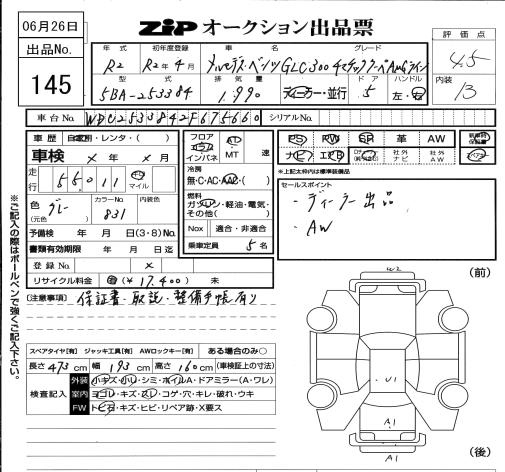 06月26日
出品No.
145
ZIP オークション出品票
評価点
4.5
内装
B
年式 初年度登録 車名 グレード
R2 R2年4月 メルセデス・ベンツ GLC300 4マチッククーペ AMGライン
型式 排気量 ドア ハンドル
5BA-253384 1,990 ディーラー・並行 5 左・右
車台No. WDC2533842F675660 シリアルNo.
車歴 自家用・レンタ・( )
フロア エアコン インパネ
AT・MT 速
車検 × 年 × 月
走行 55011 キロ マイル
冷房
無・C・AC・AAC・( )
色 (元色) グレー
カラーNo. 831
内装色
燃料
ガソリン・軽油・電気・その他( )
予備検 年 月 日(3・8)No.
Nox 適合・非適合
書類有効期限 年 月 日迄
乗車定員 5名
登録No. ×
リサイクル料金 有 (¥17,400) 未
PS PW SR 革 AW 新車時保証書
ナビ エアB 社外ナビ 社外AW スペアキー
*上記太枠内は標準装備品
セールスポイント
・ディーラー出品
・AW
[注意事項] 保証書・取説・整備手帳有り
スペアタイヤ[有] ジャッキ工具[有] AWロックキー[有] ある場合のみ○
長さ 473cm 幅 193cm 高さ 160cm (車検証上の寸法)
検査記入
外装 小キズ・小ヘコ・シミ・ホイルA・ドアミラー(A・ワレ)
室内 ヨゴレ・キズ・スレ・コゲ・穴・キレ・破れ・ウキ
FW トビ石・キズ・ヒビ・リペア跡・X要ス
※ご記入の際はボールペンで強くご記入下さい。
(前)
W2
U1
A1
A1
(後)